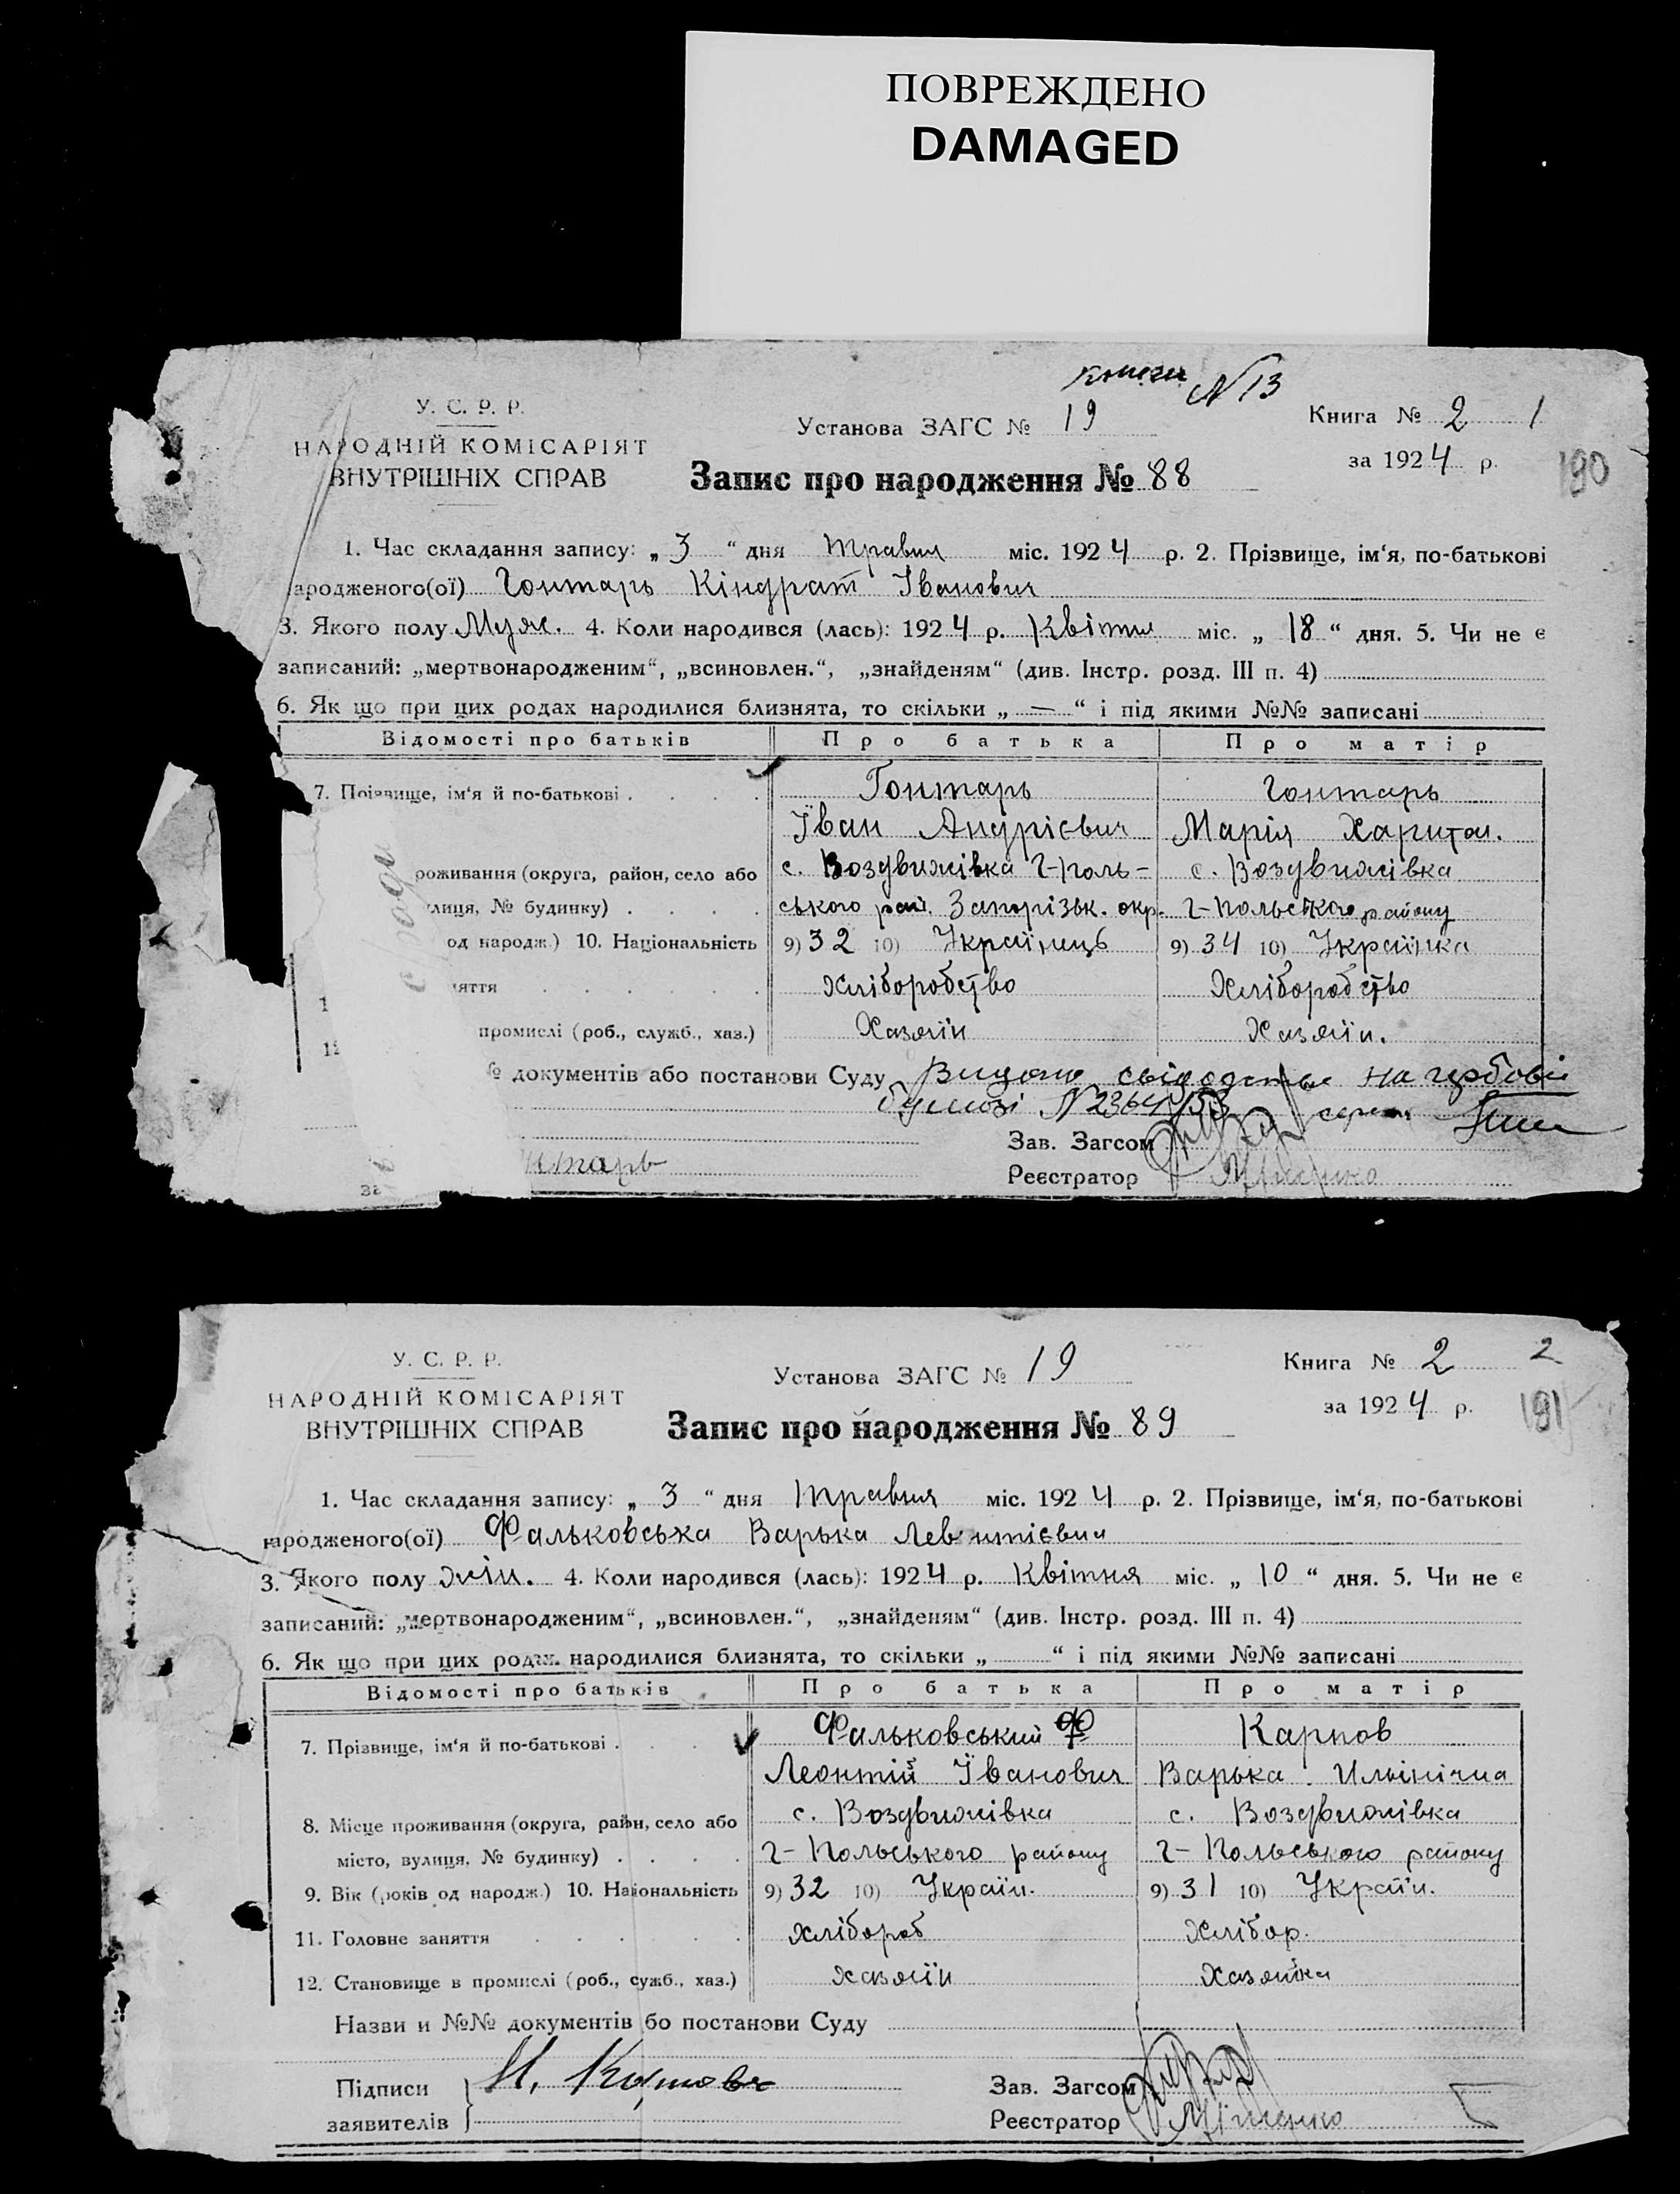 ПОВРЕЖДЕНО
DAMAGED
N 13
У. С. Р. Р.
НАРОДНІЙ КОМІСАРІЯТ
ВНУТРІШНІХ СПРАВ
Установа ЗАГС № 19
Книга № 2 1
за 1924 р.
190
Запис про народження № 88
1. Час складання запису: „ 3 “ дня травня міс. 1924 р. 2. Прізвище, ім‘я, по-батькові
ародженого(ої) Гонтарь Кіндрат Іванович
3. Якого полу Муж. 4. Коли народився (лась): 1924 р. Квітня міс. „ 18 “ дня. 5. Чи не є
записаний: „мертвонародженим“, „всиновлен.“, „знайденям“ (див. Інстр. розд. III п. 4)
6. Як що при цих родах народилися близнята, то скільки „ — “ і під якими №№ записані
Відомості про батьків Про батька Про матір
7. Прізвище, ім‘я й по-батькові . . . . Гонтарь Гонтарь
Їван Андрієвич Марія Харитон.
роживання (округа, район, село або с. Воздвижівка Г-Поль- с. Воздвижівка
улиця, № будинку) . . . . ського рай. Запорізьк. окр. Г-Польского району
од народж.) 10. Національність 9) 32 10) Українець 9) 34 10) Українка
няття . . . . . . Хліборобство Хліборобство
промислі (роб., служб., хаз.) Хазяїн Хазяїн.
№ документів або постанови Суду Видано свідоцтво на гербовій
бумозі N 2364/53
Зав. Загсом
Реєстратор Міщенко
нтарь
У. С. Р. Р.
НАРОДНІЙ КОМІСАРІЯТ
ВНУТРІШНІХ СПРАВ
Установа ЗАГС № 19
Книга № 2 2
за 1924 р.
191
Запис про народження № 89
1. Час складання запису: „ 3 “ дня травня міс. 1924 р. 2. Прізвище, ім‘я, по-батькові
народженого(ої) Фальковська Варька
3. Якого полу жін. 4. Коли народився (лась): 1924 р. Квітня міс. „ 10 “ дня. 5. Чи не є
записаний: „мертвонародженим“, „всиновлен.“, „знайденям“ (див. Інстр. розд. III п. 4)
6. Як що при цих родах народилися близнята, то скільки „ “ і під якими №№ записані
Відомості про батьків Про батька Про матір
7. Прізвище, ім‘я й по-батькові . . . . Фальковський Ф Карпов
Леонтій Їванович Варька Ильінічна
8. Місце проживання (округа, район, село або с. Воздвижівка с. Воздвижівка
місто, вулиця, № будинку) . . . . Г-Польського району Г-Польського району
9. Вік (років од народж.) 10. Національність 9) 32 10) Україн. 9) 31 10) Україн.
11. Головне заняття . . . . . . хлібороб хлібор.
12. Становище в промислі (роб., сужб., хаз.) хазяїн хазяйка
Назви и №№ документів бо постанови Суду
Підписи
заявителів
Зав. Загсом
Реєстратор Міщенко